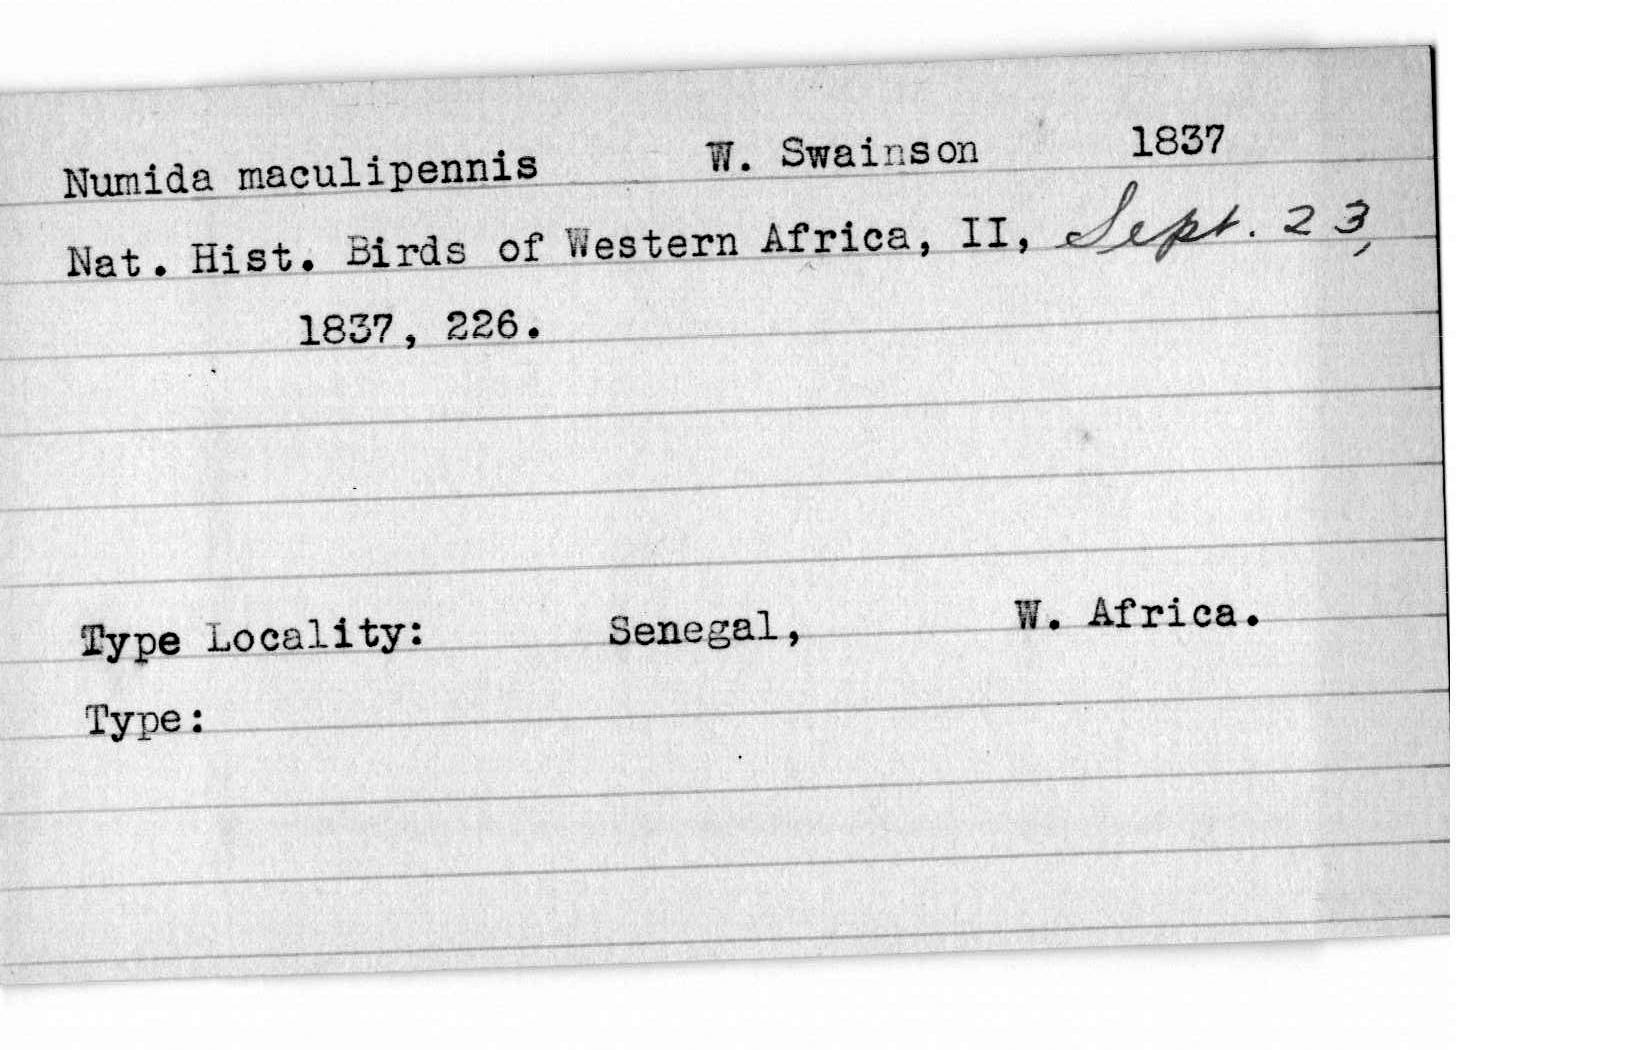 Numida maculipennis W. Swainson 1837
Nat. Hist. Birds of Western Africa, II, Sept. 23,
1837, 226.
Type Locality: Senegal, W. Africa.
Type: